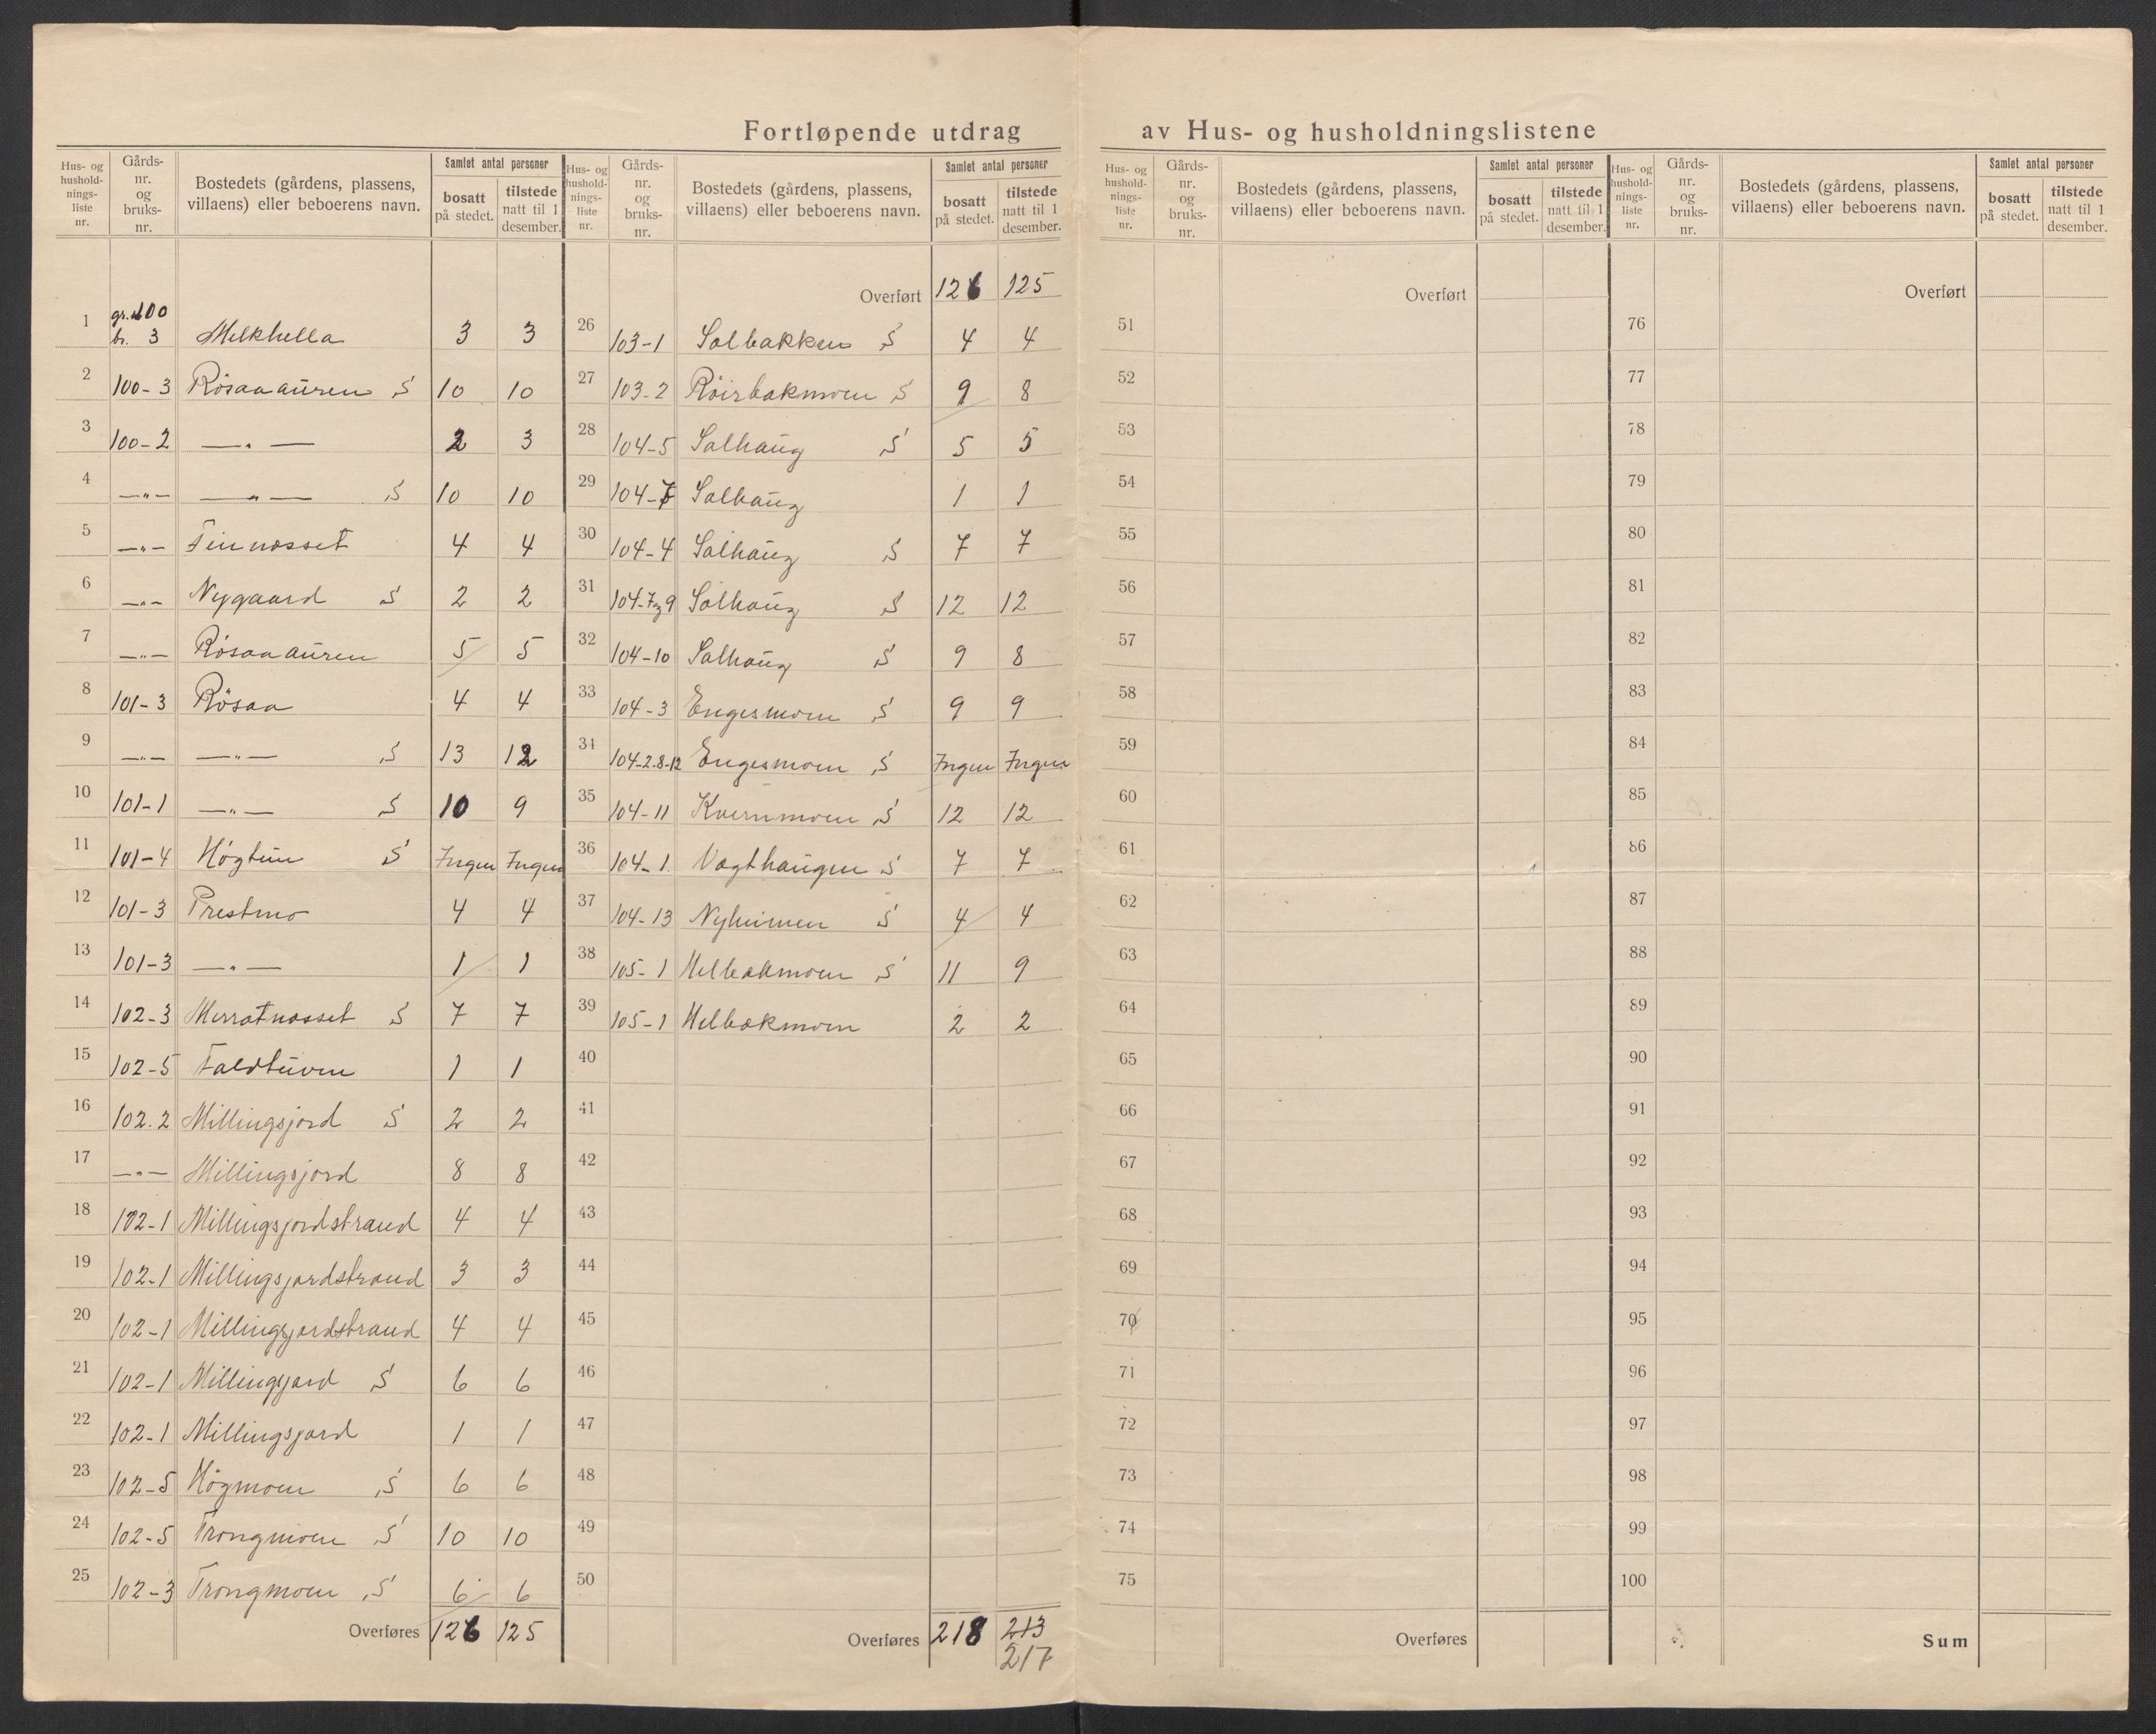 Fortløpende utdrag av Hus- og husholdningslistene
Hus- og hushold- nings- liste nr. | Gårds- nr. og bruks- nr. | Bostedets (gårdens, plassens, villaens) eller beboerens navn. | Samlet antal personer | bosatt på stedet. | tilstede natt til 1 desember.
1 gr. 100 br. 3 Melkhella 3 3
2 100-3 Rösaaauren S 10 10
3 100-2 —"— 2 3
4 —"— —"— S 10 10
5 —"— Finnosset 4 4
6 —"— Nygaard S 2 2
7 —"— Rösaaauren 5 5
8 101-3 Rösaa 4 4
9 —"— —"— S 13 12
10 101-1 —"— S 10 9
11 101-4 Högtun S Ingen Ingen
12 101-3 Prestmo 4 4
13 101-3 —"— 1 1
14 102-3 Merratnosset S 7 7
15 102-5 Faldtuven 1 1
16 102.2 Millingsjord S 2 2
17 —"— Millingsjord 8 8
18 102-1 Millingsjordstrand 4 4
19 102-1 Millingsjordstrand 3 3
20 102-1 Millingsjordstrand 4 4
21 102-1 Millingsjord S 6 6
22 102-1 Millingsjord 1 1
23 102-5 Högmoen S 6 6
24 102-5 Trongmoen S 10 10
25 102-3 Trongmoen S 6 6
Overføres 126 125
Hus- og hushold- nings- liste nr. | Gårds- nr. og bruks- nr. | Bostedets (gårdens, plassens, villaens) eller beboerens navn. | Samlet antal personer | bosatt på stedet. | tilstede natt til 1 desember.
Overført 126 125
26 103-1 Solbakken S 4 4
27 103-2 Röirbakmoen S 9 8
28 104-5 Solhaug S 5 5
29 104-7 Solhaug 1 1
30 104-4 Solhaug S 7 7
31 104-7 og 9 Solhaug S 12 12
32 104-10 Solhaug S 9 8
33 104-3 Engesmoen S 9 9
34 104-2.8-12 Engesmoen S Ingen Ingen
35 104-11 Kvernmoen S 12 12
36 104-1 Vagthaugen S 7 7
37 104-13 Nyheimen S 4 4
38 105-1 Helbakmoen S 11 9
39 105-1 Helbakmoen 2 2
40
41
42
43
44
45
46
47
48
49
50
Overføres 218 213
217
Hus- og hushold- nings- liste nr. | Gårds- nr. og bruks- nr. | Bostedets (gårdens, plassens, villaens) eller beboerens navn. | Samlet antal personer | bosatt på stedet. | tilstede natt til 1 desember.
Overført
51
52
53
54
55
56
57
58
59
60
61
62
63
64
65
66
67
68
69
70
71
72
73
74
75
Overføres
Hus- og hushold- nings- liste nr. | Gårds- nr. og bruks- nr. | Bostedets (gårdens, plassens, villaens) eller beboerens navn. | Samlet antal personer | bosatt på stedet. | tilstede natt til 1 desember.
Overført
76
77
78
79
80
81
82
83
84
85
86
87
88
89
90
91
92
93
94
95
96
97
98
99
100
Sum